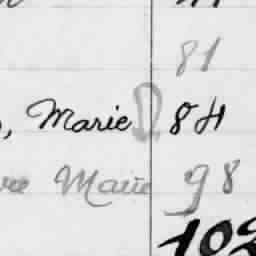 81
, Marie D 84
re Marie 98
102